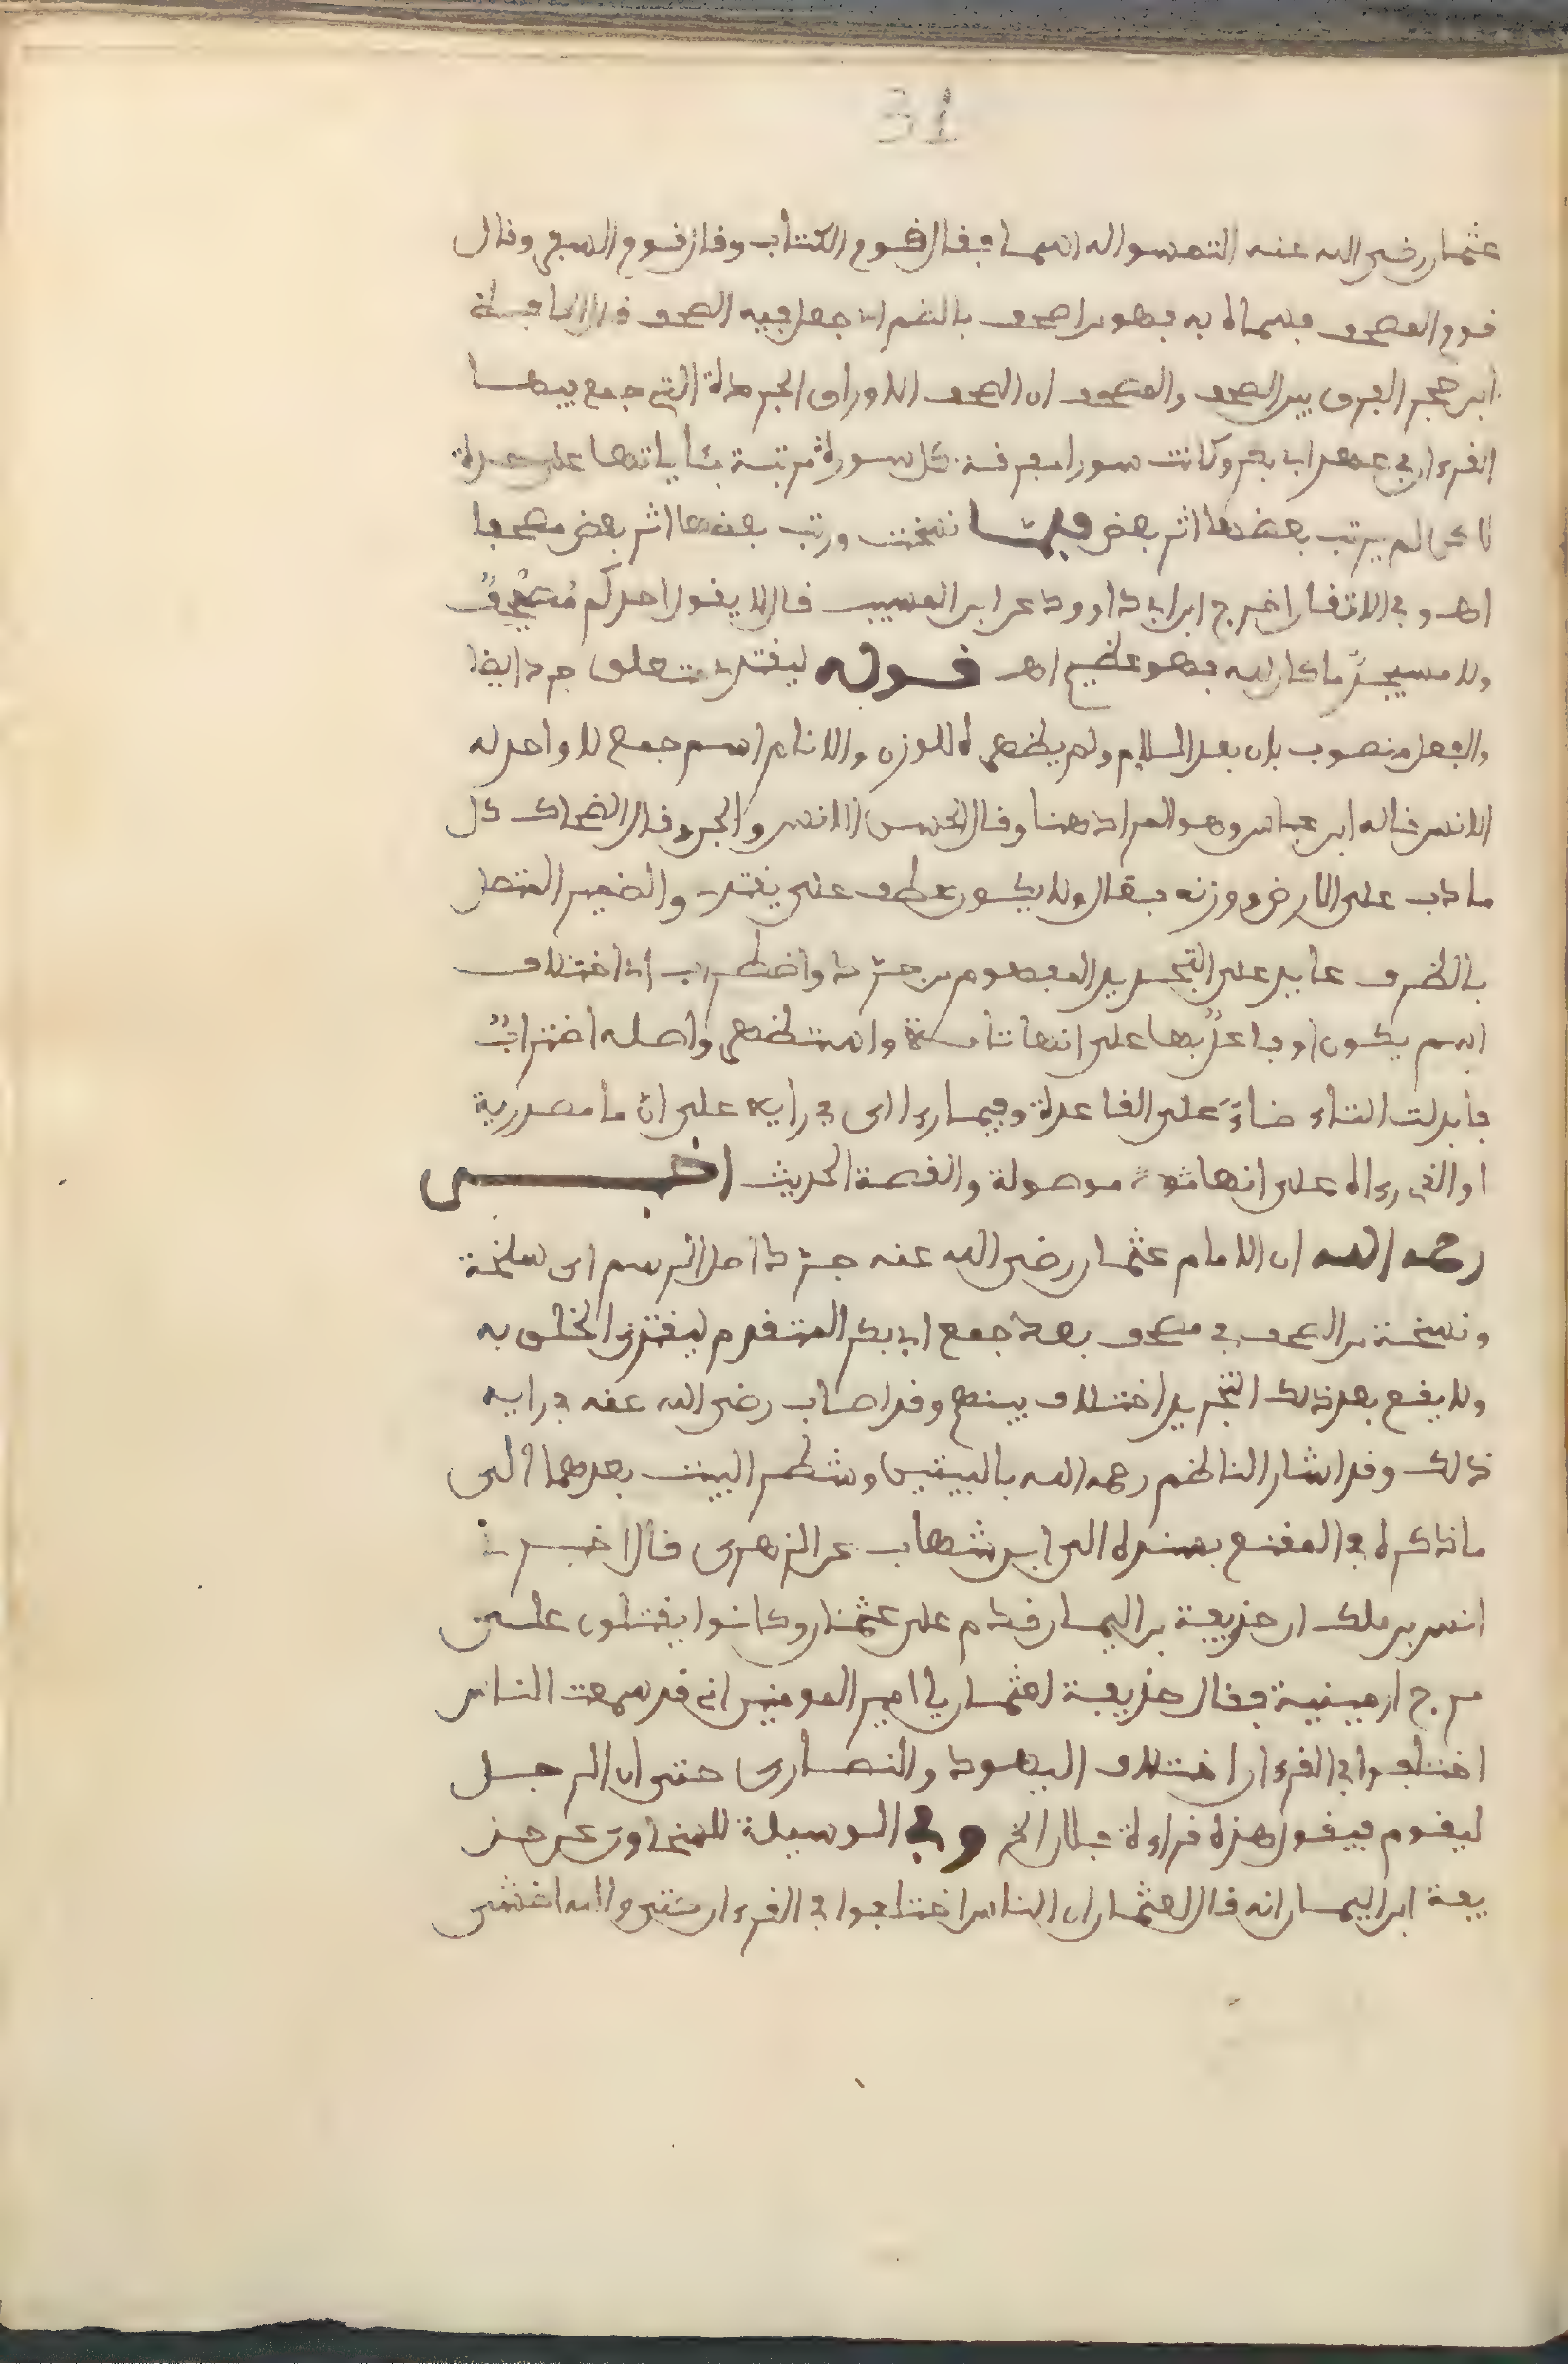 31
عثمان رضي الله عنه التمسوا له اسما فقال قوم الكتاب وقال قوم السفر وقال
قوم المصحف فسماه به فهو من اصحف بالضم اي جعل فيه الصحف قال الحافظ
ابن حجر الفرق بين الصحف والمصحف ان الصحف الاوراق المجردة التي جمع فيها
القرءان في عهد ابي بكر وكانت سورا مفرقة كل سورة مرتبة بئاياتها على حدة
لاكن لم يرتب بعضها اثر بعض فلما نسخت ورتب بعضها اثر بعض مصحفا
اهـ وفي الاتقان اخرج ابن ابي داوود عن ابن المسيب قال لا يقول احدكم مُصَيْحِفٌ
ولا مسيجدٌ ما كان لله فهو عظيم اهـ قوله ليقتدي متعلق بجرد ايضا
والفعل منصوب بان بعد اللام ولم يظهره للوزن والانام اسم جمع لا واحد له
الانس قاله ابن عباس وهو المراد هنا وقال الحسن الانس والجن وقال الضحاك كل
ما دب على الارض ووزنه فعال ولا يكون عطف على يقتدي والضمير المتصل
بالظرف عايد على التجريد المفهوم من جرده واضطراب اي اختلاف
اسم يكون او فاعلٌ بها على انها تامة واستظهر واصله اضترابٌ
فابدلت التاء طاءً على القاعدة وفيما رءا اى في رايه على ان ما مصدرية
او الذي رءاه على انها موصولة والقصة الحديث اخبر
رحمه الله ان الامام عثمان رضي الله عنه جرد اصل الرسم اى سلخه
ونسخه من الصحف في مصحف بعد جمع ابي بكر المتقدم ليقتدي الخلق به
ولا يقع بعد ذلك التجريد اختلاف بينهم وقد اصاب رضي الله عنه في رايه
ذلك وقد اشار الناظم رحمه الله بالبيتين وشطر البيت بعدهما الى
ما ذكره في المقنع بسنده الى ابن شهاب عن الزهرى قال اخبرني
انس بن ملك ان حذيفة بن اليمان قدم على عثمان وكانوا يقتلون على
مرج ارمينية فقال حذيفة لعثمان يا امير المومنين انى قد سمعت الناس
اختلفوا في القرءان اختلاف اليهود والنصارى حتى ان الرجل
ليقوم فيقول هذه قراءة فلان الخ وفي الوسيلة للسخاوي عن حذ
يفة ابن اليمان انه قال لعثمان ان الناس اختلفوا في القرءان حتى والله اخشى